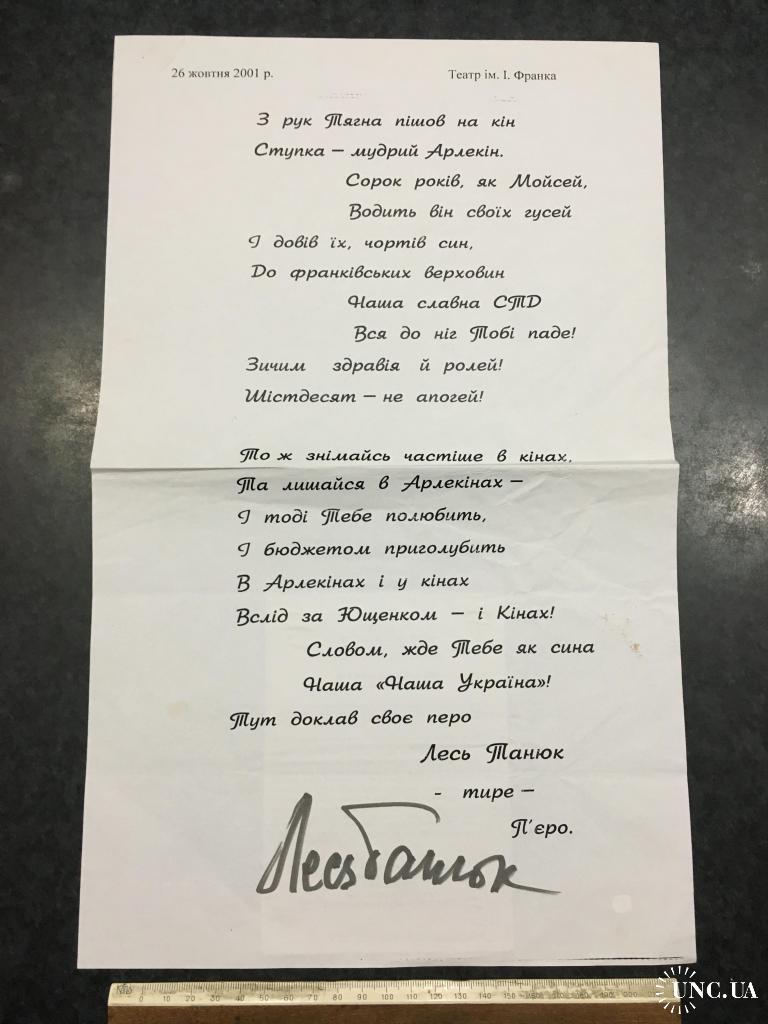 26 жовтня 2001 р.
Театр ім. І. Франка
З рук Тягна пішов на кін
Ступка – мудрий Арлекін.
Сорок років, як Мойсей,
Водить він своїх гусей
І довів їх, чортів син,
До франківських верховин
Наша славна СТД
Вся до ніг Тобі паде!
Зичим здравія й ролей!
Шістдесят – не апогей!
То ж знімайсь частіше в кінах,
Та лишайся в Арлекінах –
І тоді Тебе полюбить,
І бюджетом приголубить
В Арлекінах і у кінах
Вслід за Ющенком – і Кінах!
Словом, жде Тебе як сина
Наша «Наша Україна»!
Тут доклав своє перо
Лесь Танюк
- тире –
П'єро.
Лесь Танюк
0 10 20 30 40 50 60 70 80 90 100 110 120 130 140 150 160 170 180 190 200
UNC.UA